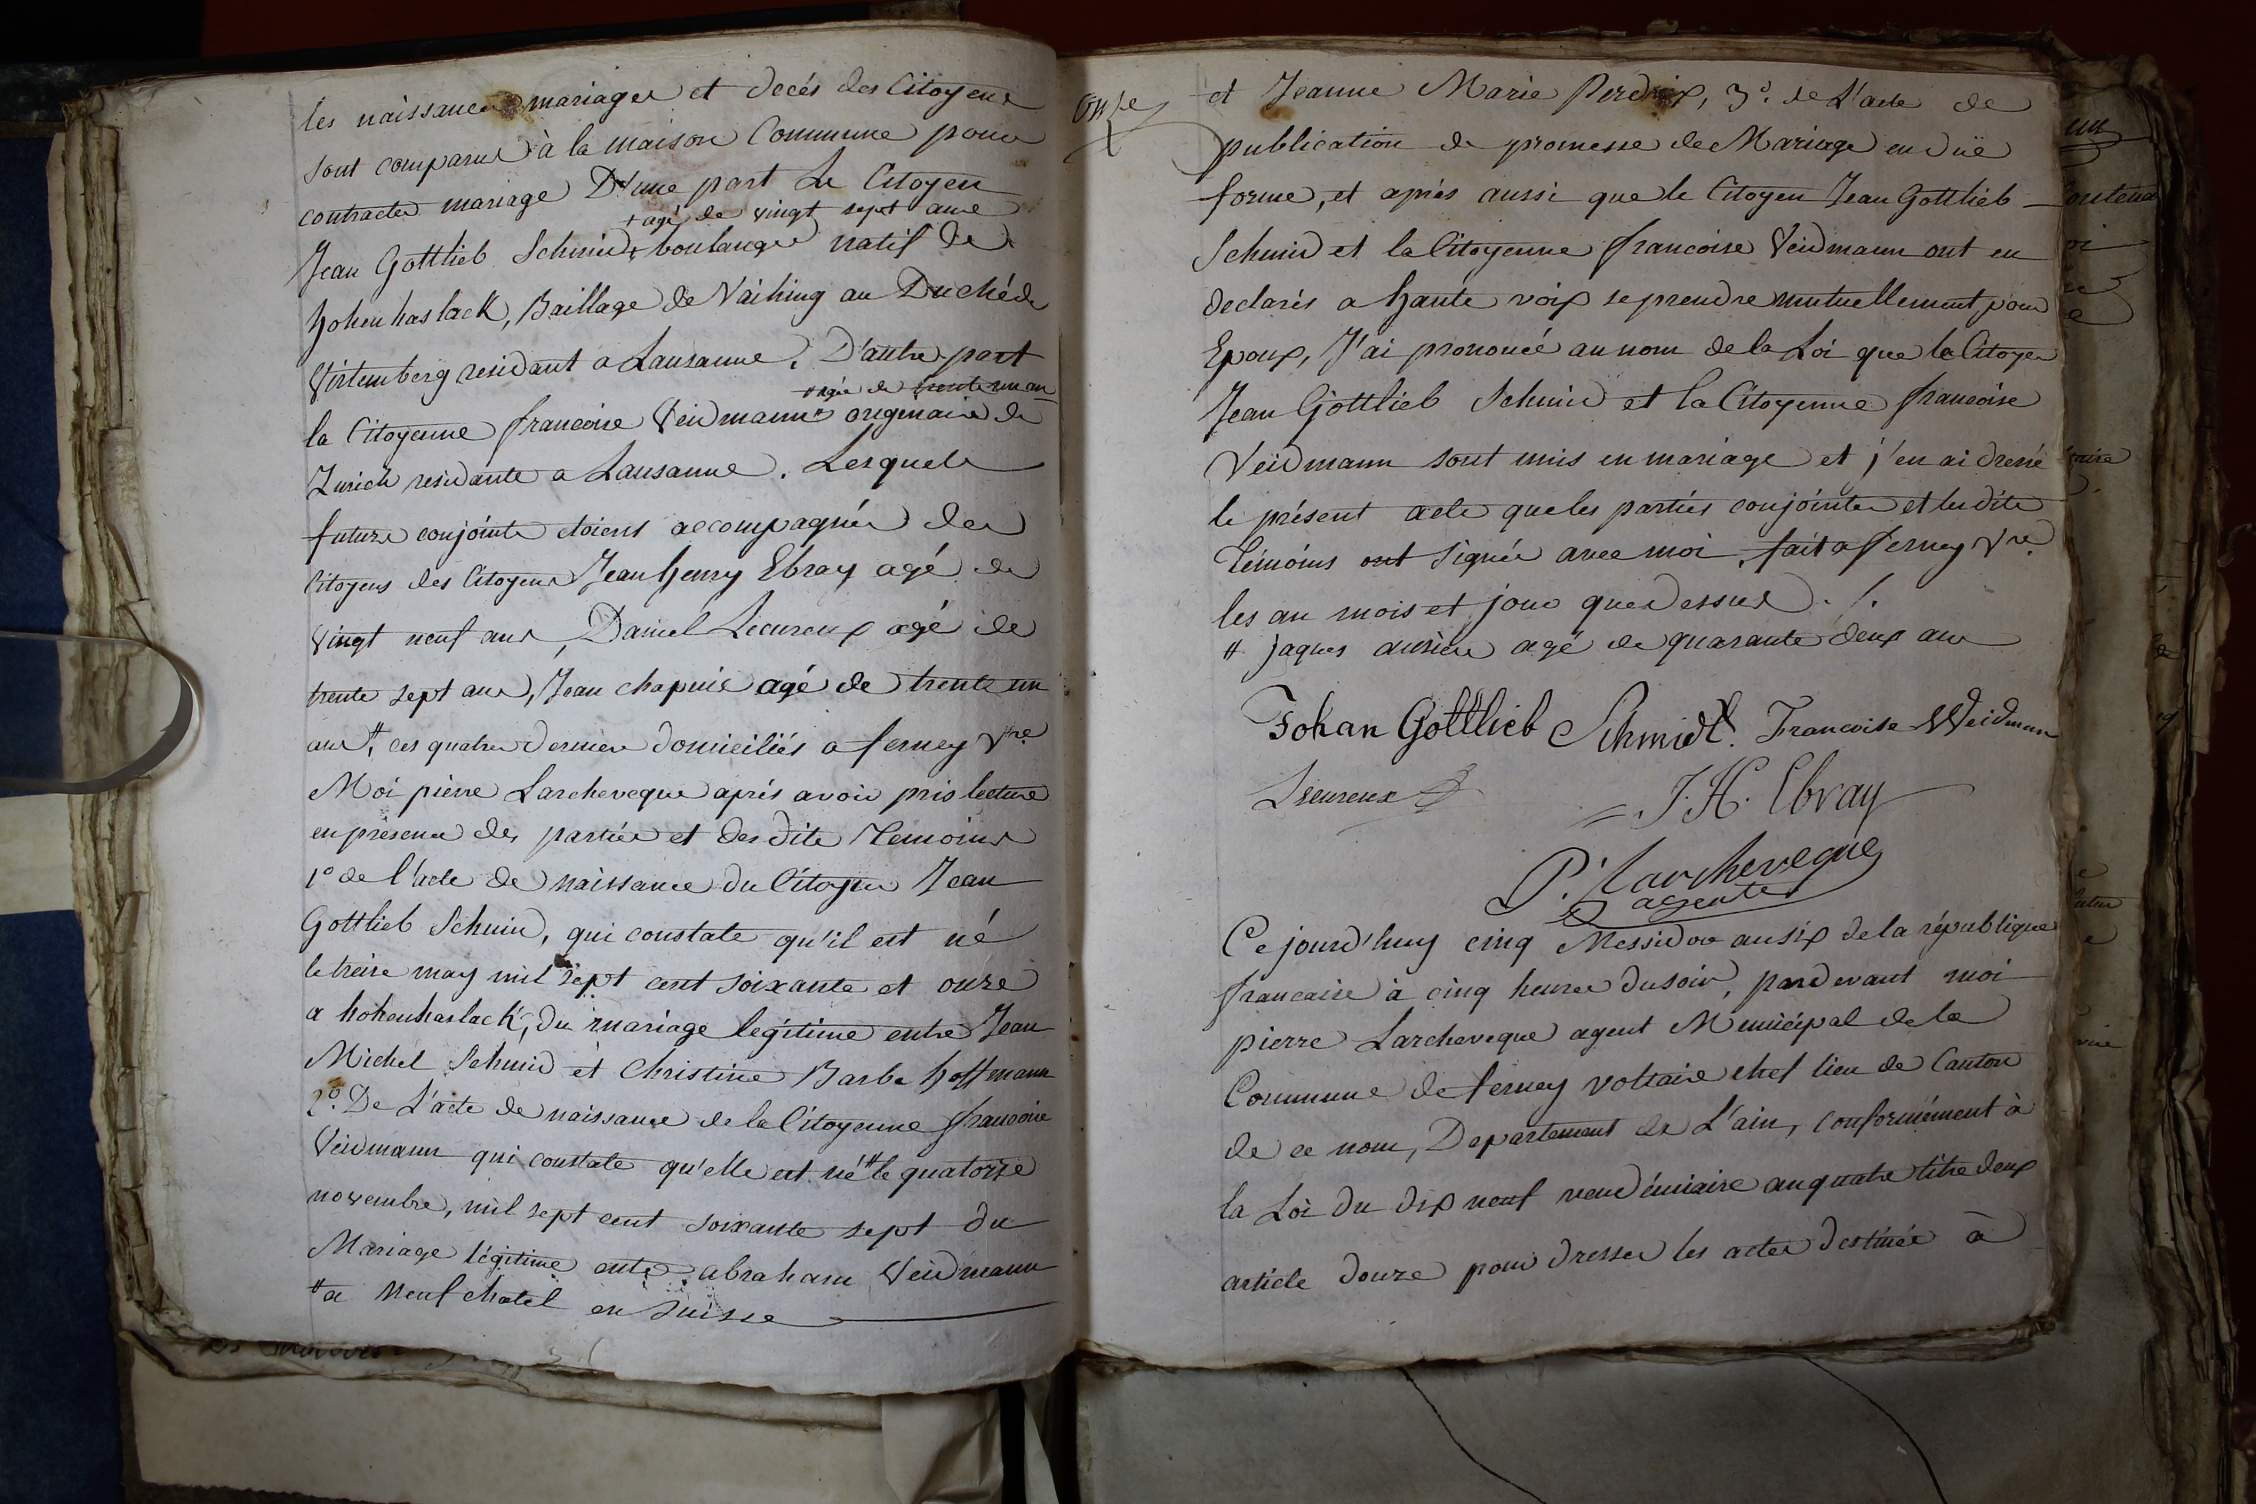 les naissances mariages et decés des Citoyens
sont comparus à la maison Commune pour
contracter mariage D'une part Le Citoyen
+ agé de vingt sept ans
Jean Gottlieb Schmid + boulanger natif de
hohenhaslack, Baillage de Vaihing au Duché de
Virtemberg residant a Lausanne. D'autre part
+ agée de trente un an
la Citoyenne francoise Veidmann + originaire de
Zurich residante a Lausanne. Lesquels
futurs conjoints etoient accompagnés des
Citoyens des Citoyens Jean henry Ebray agé de
vingt neuf ans, Daniel Lecureux agé de
trente sept ans, Jean chapuis agé de trente un
ans #, ces quatre derniers domiciliés a ferney Vre
Moi pierre Larcheveque aprés avoir pris lecture
en presence des parties et des dits Temoins
1º de l'acte de naissance du Citoyen Jean
Gottlieb Schmid, qui constate qu'il est né
le treise may mil sept cent soixante et onze
a hohenhaslack, du mariage legitime entre Jean
Michel Schmid et Christine Barbe hoffmann
2º. De L'acte de naissance de la Citoyenne francoise
Veidmann qui constate qu'elle est né # le quatorze
novembre, mil sept cent soixante sept du
Mariage légitime entre abraham Veidmann
# a Neufchatel en Suisse
Onze
et Jeanne Marie Perdrix, 3º. de L'acte de
publication de promesse de Mariage en düe
forme, et aprés aussi que le Citoyen Jean Gottlieb
Schmid et la Citoyenne francoise Veidmann ont eu
declarés a haute voix se prendre mutuellement pour
Epoux, J'ai prononcé au nom de la Loi que le Citoyen
Jean Gottlieb Schmid et la Citoyenne francoise
Veidmann sont unis en mariage et j'en ai dressé
le présent acte que les parties conjointes et les dits
Témoins ont signés avec moi, fait a ferney Vre
les an mois et jour que dessus ./.
# jaques agé de quarante deux ans
Johan Gottlieb Schmidt. Francoise Weidman
Lecureux
J. H. Ebray
P. Larcheveque
agent
Ce jourd'huy cinq Messidor an six de la république
francaise à cinq heures du soir, pardevant moi
pierre Larcheveque agent Municipal de la
Commune de ferney voltaire chef lieu de Canton
de ce nom, Departement de L'ain, conformément à
la Loi du dix neuf vendémiaire an quatre titre deux
article douze pour dresser les actes destinés à